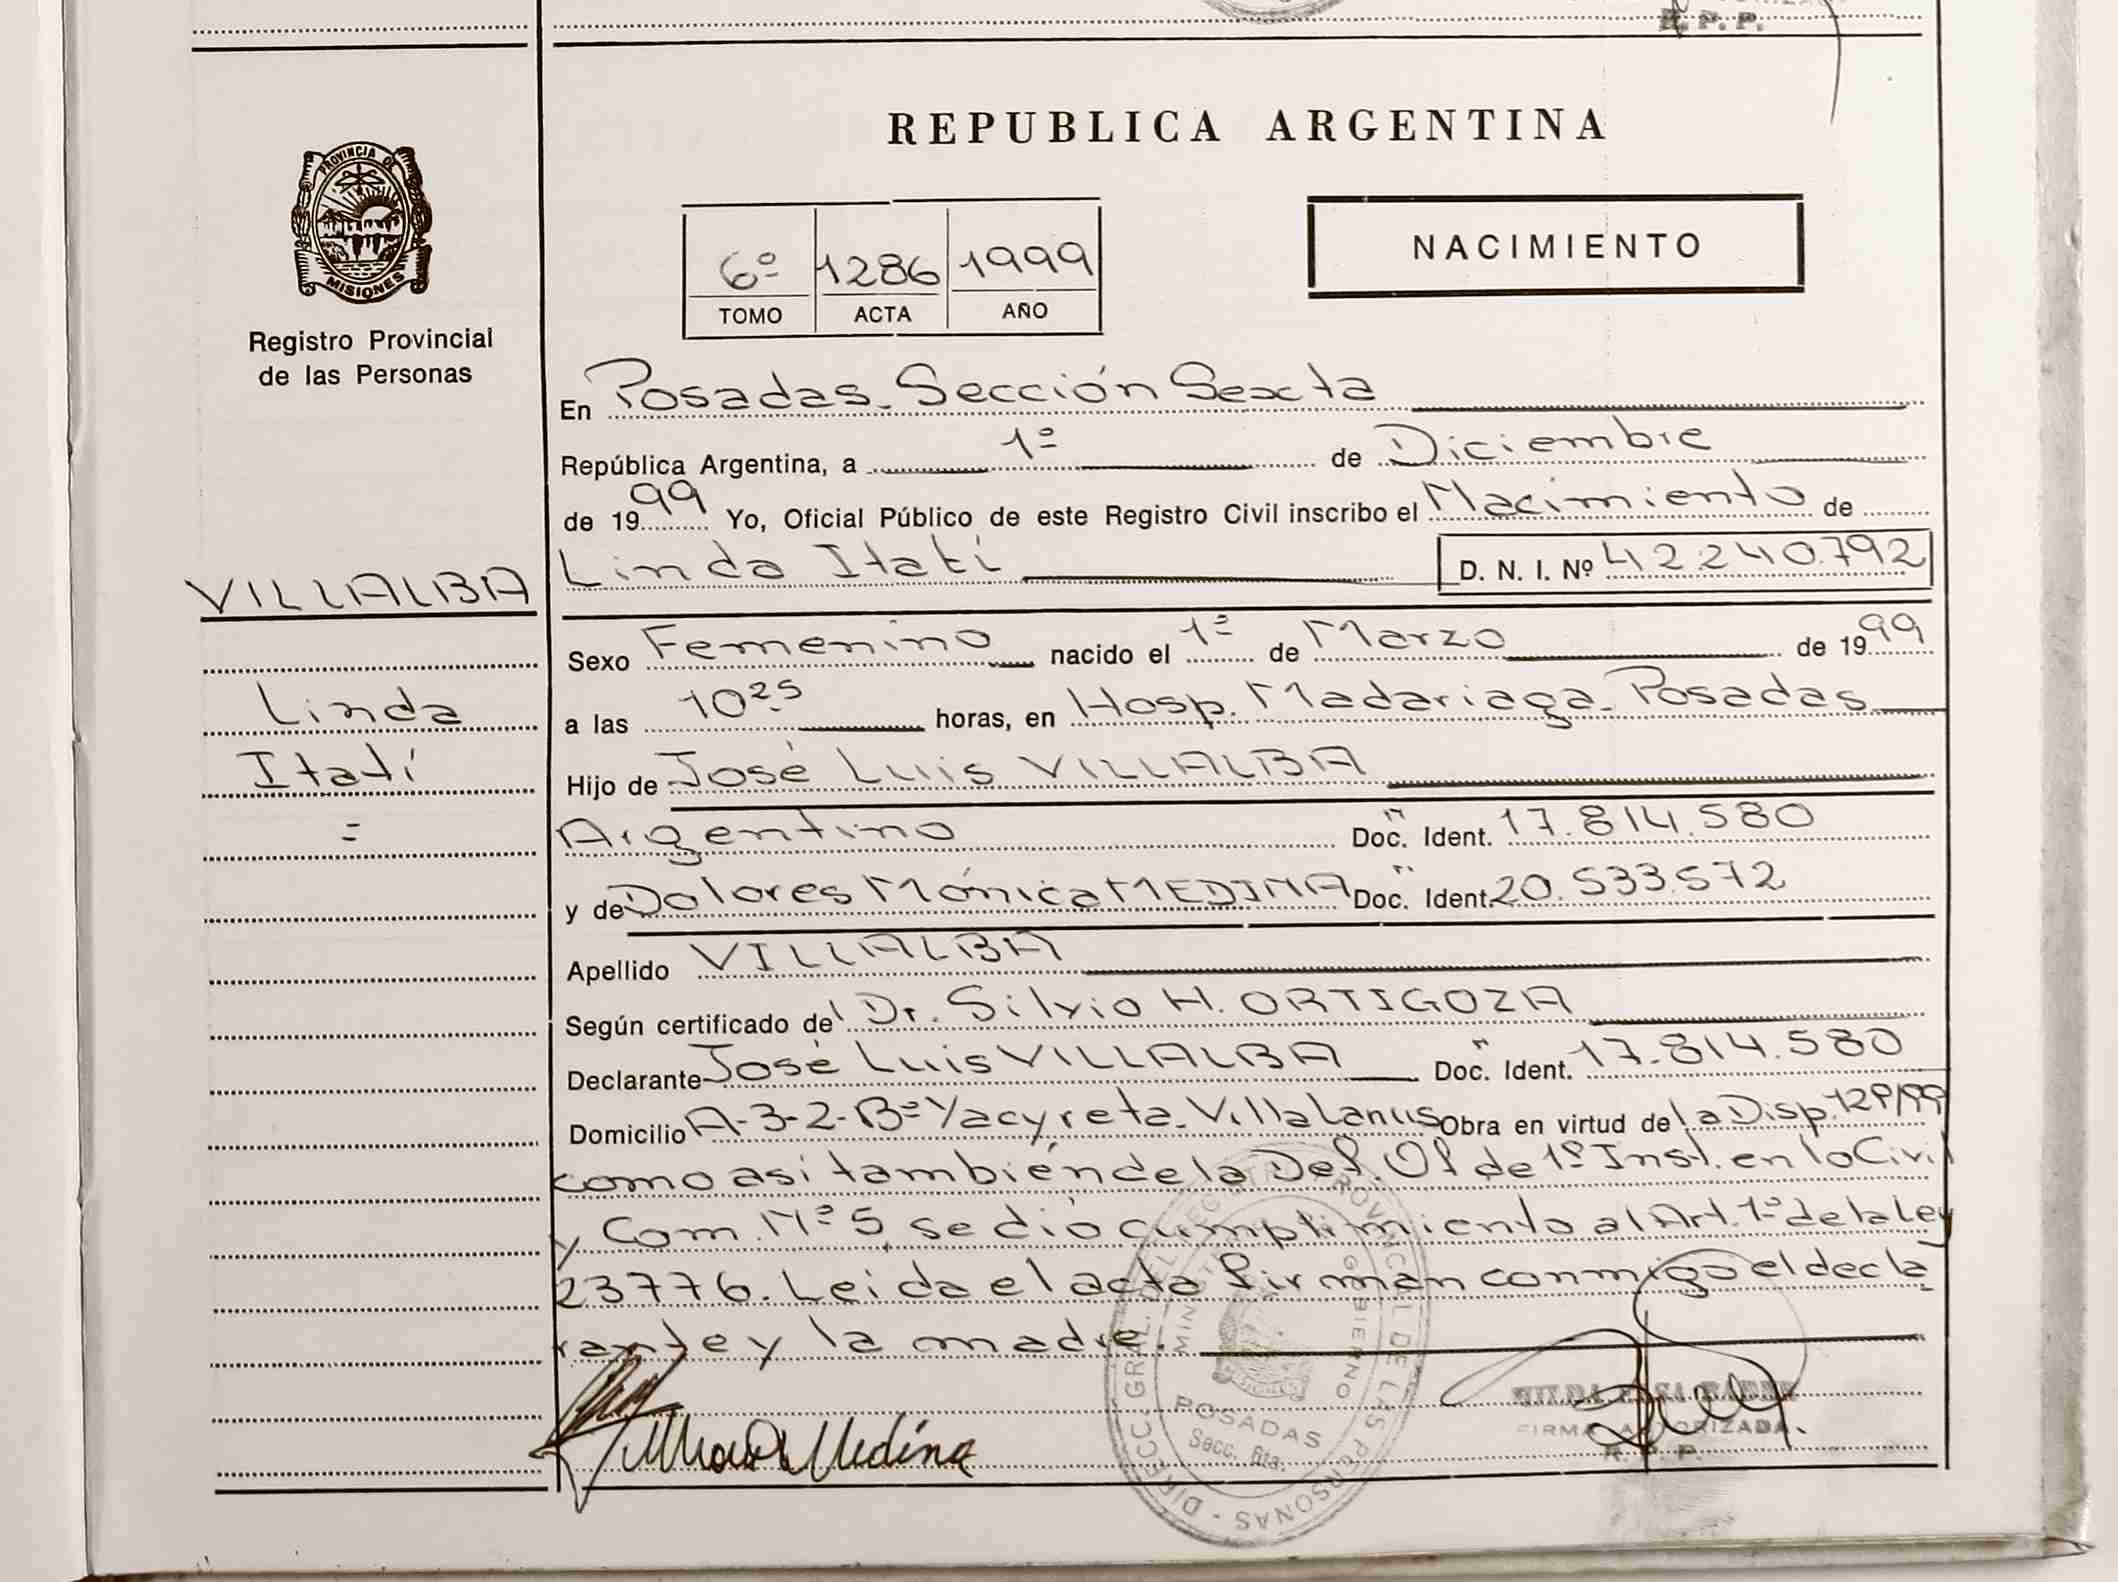 R. P. P.
PROVINCIA DE
MISIONES
Registro Provincial
de las Personas
REPUBLICA ARGENTINA
6º 1286 1999
TOMO ACTA AÑO
NACIMIENTO
En Posadas. Sección Sexta
República Argentina, a 1º de Diciembre
de 1999 Yo, Oficial Público de este Registro Civil inscribo el Nacimiento de
VILLALBA
Linda Itatí D. N. I. Nº 42.240.792
Sexo Femenino nacido el 1º de Marzo de 1999
Linda
a las 10²⁵ horas, en Hosp. Madariaga. Posadas
Itatí
Hijo de José Luis VILLALBA
=
Argentino Doc. Ident. 17.814.580
y de Dolores Mónica MEDINA Doc. Ident. 20.533.572
Apellido VILLALBA
Según certificado del Dr. Silvio H. ORTIGOZA
Declarante José Luis VILLALBA Doc. Ident. 17.814.580
Domicilio A-3-2-Bº Yacyreta. Villa Lanus Obra en virtud de la Disp.
como asi también de la Def. Of de 1º Inst. en lo Civil
y Com. Nº 5 se dió cumplimiento al Art. 1º de la Ley
23776. Leida el acta firman conmigo el decla
rante y la madre.
Medina
DIRECC. GRAL. DEL REGISTRO PROVINCIAL DE LAS PERSONAS
GOBIERNO
POSADAS
Secc. 6ta.
FIRMA AUTORIZADA
R. P. P.